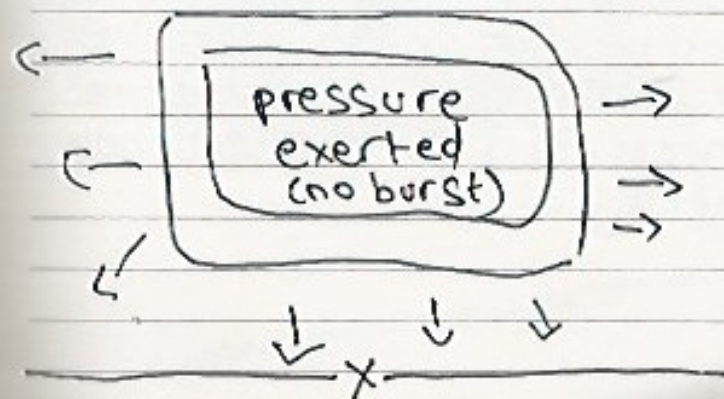 pressure
exerted
(no burst)
X